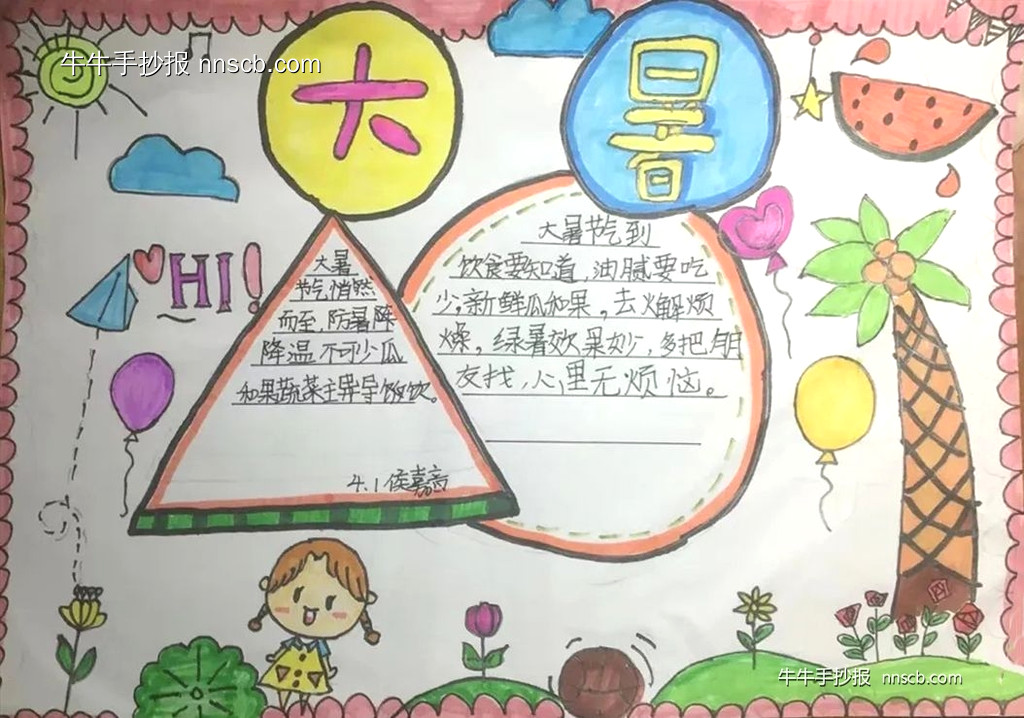 牛牛手抄报 nnscb.com
大
暑
HI!
大暑
节气,悄然
而至,防暑降
降温,不可少瓜
和果蔬菜主异导饭饮。
4.1侯嘉高
大暑节气到
饮食要知道,油腻要吃
少,新鲜瓜和果,去火解烦
燥,绿暑效果妙,多把朋
友找,心里无烦恼。
牛牛手抄报 nnscb.com